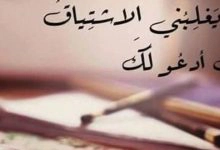 يَغلِبُني الاشتِياقُ
أدعُو لَكَ